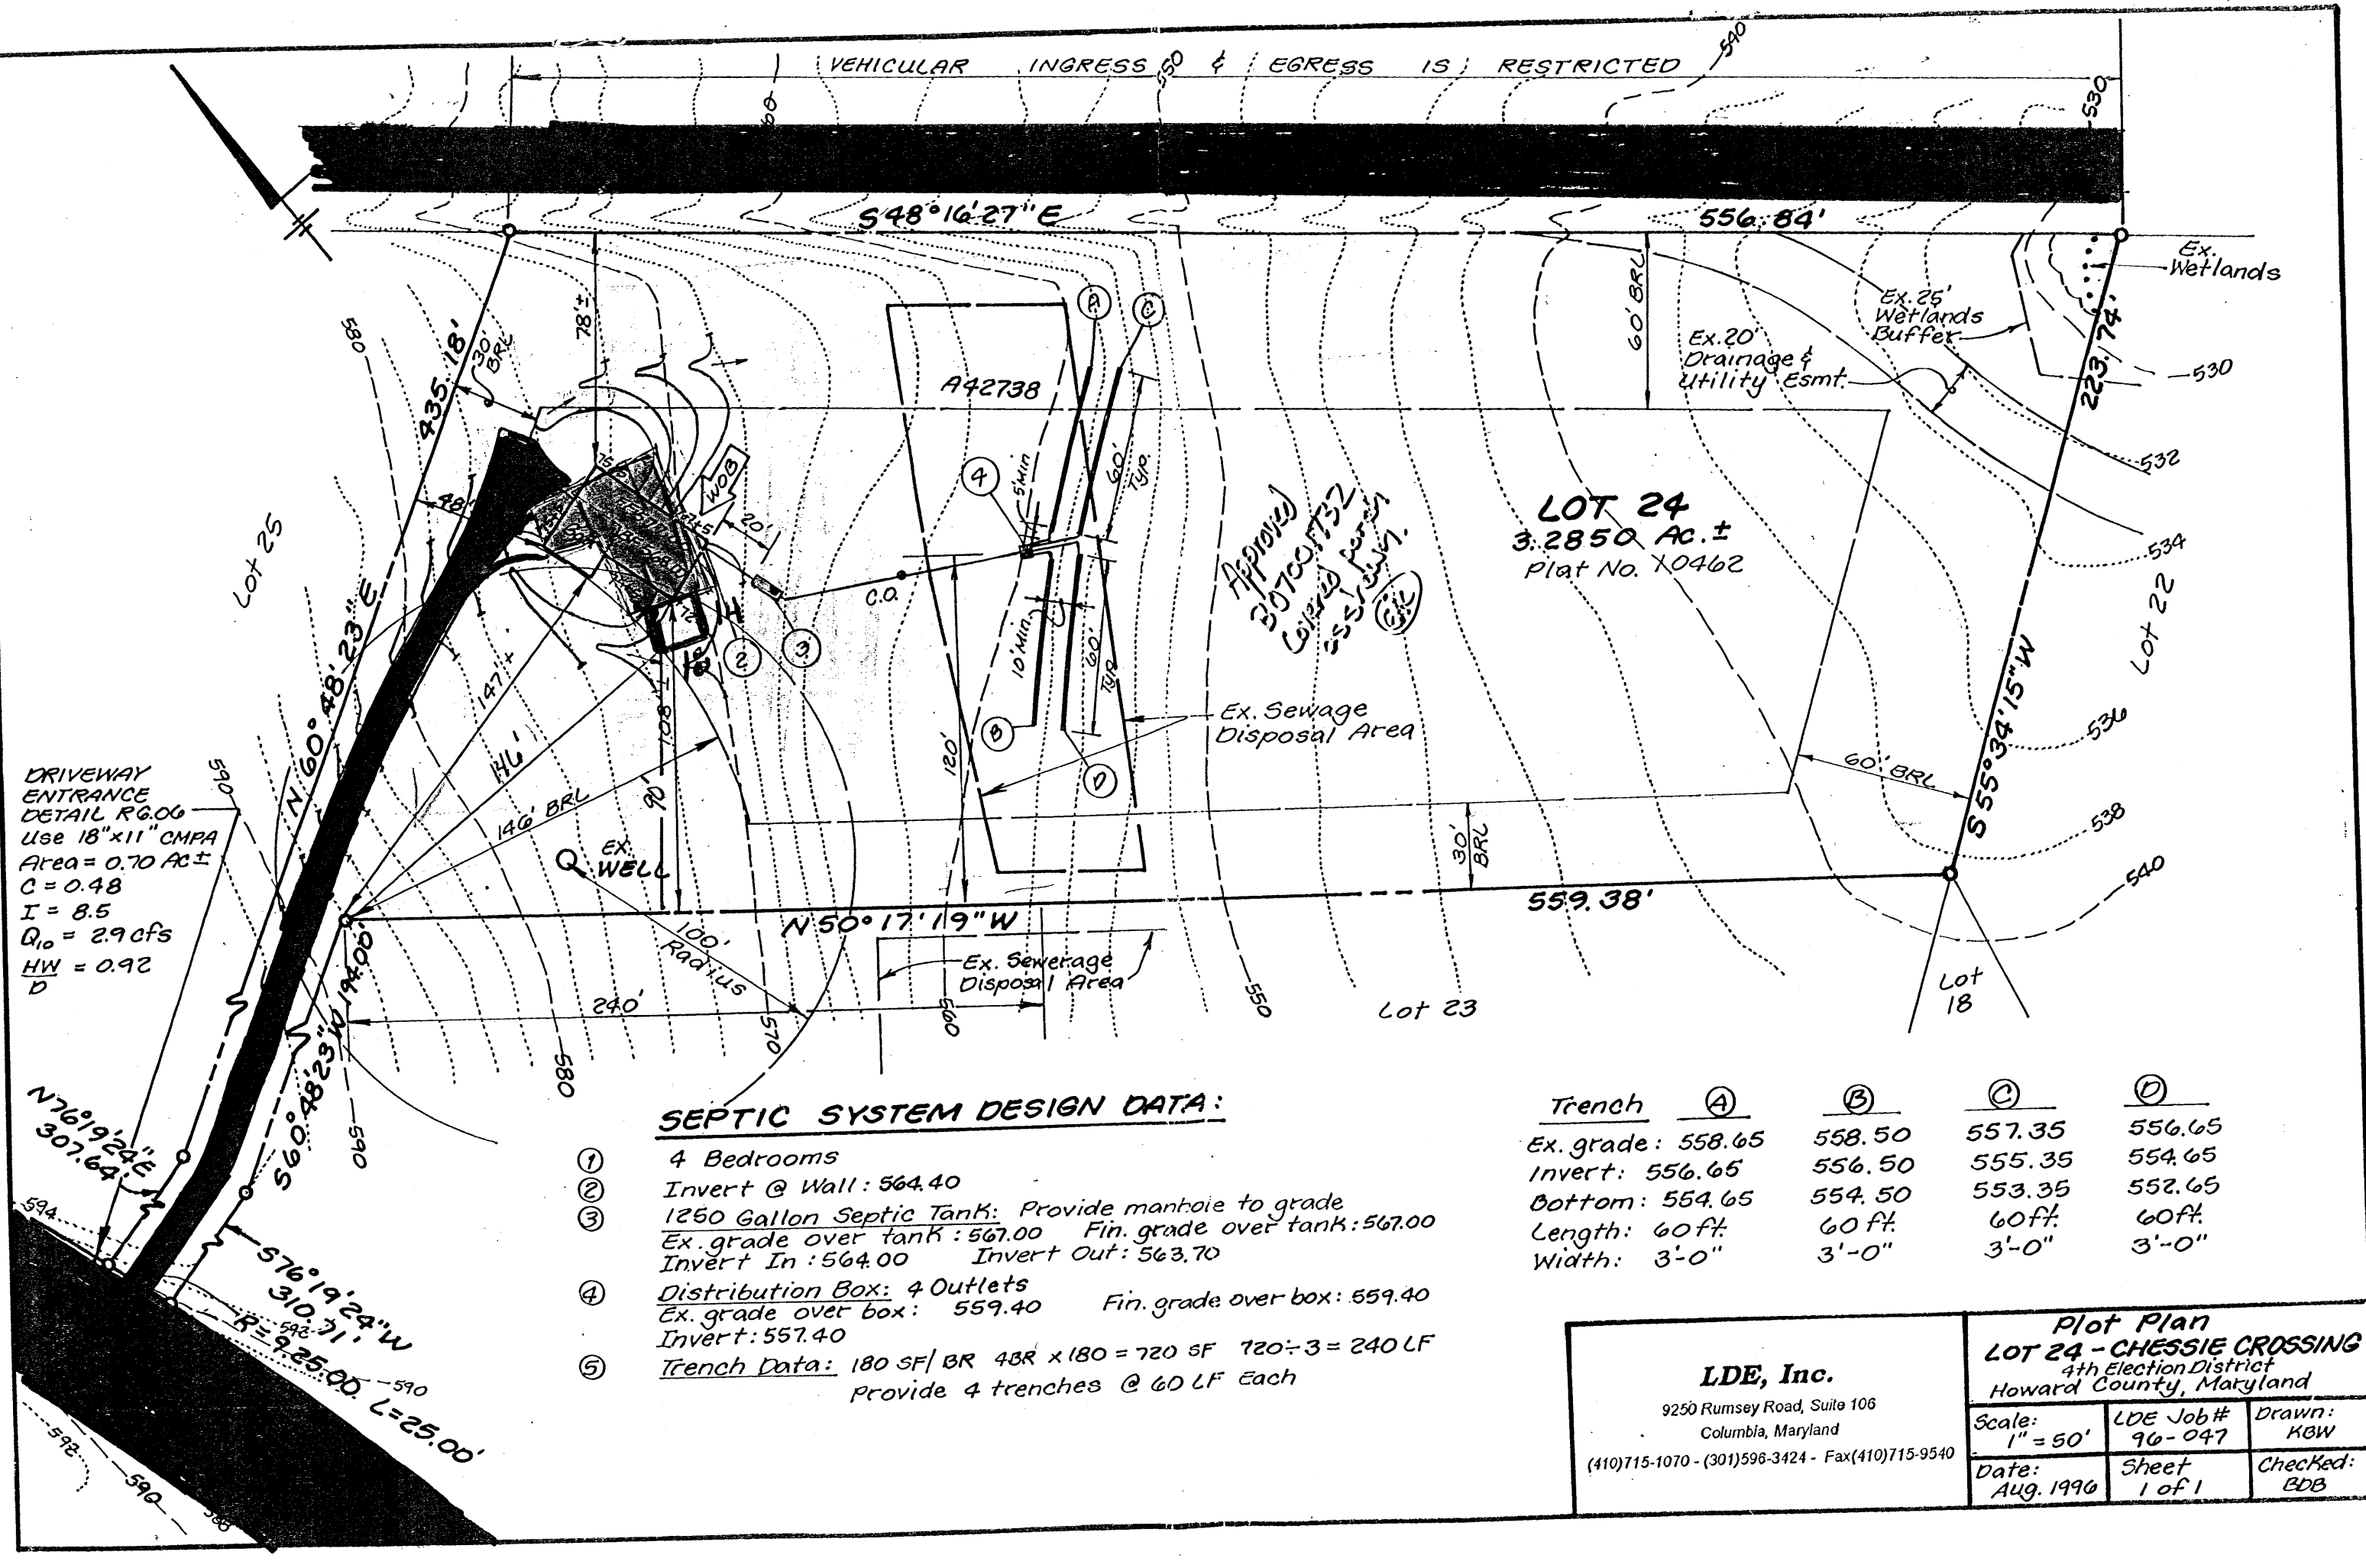 VEHICULAR INGRESS & EGRESS IS RESTRICTED
550
540
530
60
S 48° 16' 27" E
556.84'
Ex. Wetlands
Ex. 25'
Wetlands
Buffer
Ex. 20'
Drainage &
Utility Esmt.
60' BRL
223.74'
530
532
534
536
538
540
580
435.18'
30'
BRL
78'±
A42738
A
C
4
5' Min
60'
TYP.
WOB
20'
48'
Lot 25
C.O.
2
3
10' Min.
60'
TYP.
B
D
Approved
B07001732
LOT 24
3.2850 AC.±
Plat No. 10462
Lot 22
Ex. Sewage
Disposal Area
120'
147'±
146'
146' BRL
108'±
90'
EX.
WELL
100'
Radius
N 60° 48' 23" E
60' BRL
30'
BRL
S 55° 34' 15" W
559.38'
N 50° 17' 19" W
Ex. Sewerage
Disposal Area
240'
Lot 23
Lot
18
590
580
570
560
550
590
DRIVEWAY
ENTRANCE
DETAIL R6.06
Use 18"x11" CMPA
Area = 0.70 AC±
C = 0.48
I = 8.5
Q10 = 2.9 cfs
HW/D = 0.92
S60°48'23"W 194.00'
N76°19'24"E
307.64'
S76°19'24"W
310.71'
R=925.00' L=25.00'
594
592
590
592
590
SEPTIC SYSTEM DESIGN DATA:
1 4 Bedrooms
2 Invert @ Wall: 564.40
3 1250 Gallon Septic Tank: Provide manhole to grade
Ex. grade over tank: 567.00 Fin. grade over tank: 567.00
Invert In: 564.00 Invert Out: 563.70
4 Distribution Box: 4 Outlets
Ex. grade over box: 559.40 Fin. grade over box: 559.40
Invert: 557.40
5 Trench Data: 180 SF/BR 4BR x 180 = 720 SF 720÷3 = 240 LF
Provide 4 trenches @ 60 LF Each
Trench A B C D
Ex. grade: 558.65 558.50 557.35 556.65
Invert: 556.65 556.50 555.35 554.65
Bottom: 554.65 554.50 553.35 552.65
Length: 60 ft. 60 ft. 60 ft. 60 ft.
Width: 3'-0" 3'-0" 3'-0" 3'-0"
LDE, Inc.
9250 Rumsey Road, Suite 106
Columbia, Maryland
(410)715-1070 - (301)596-3424 - Fax(410)715-9540
Plot Plan
LOT 24 - CHESSIE CROSSING
4th Election District
Howard County, Maryland
Scale:
1" = 50'
LDE Job #
96-047
Drawn:
KBW
Date:
Aug. 1996
Sheet
1 of 1
Checked:
BDB